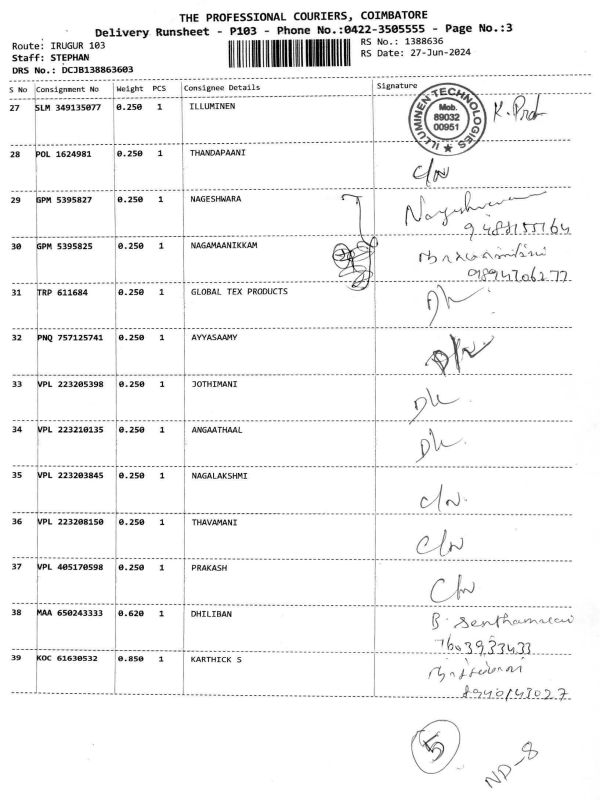 THE PROFESSIONAL COURIERS, COIMBATORE
Delivery Runsheet - P103 - Phone No.:0422-3505555 - Page No.:3
Route: IRUGUR 103 RS No.: 1388636
Staff: STEPHAN RS Date: 27-Jun-2024
DRS No.: DCJB138863603
S No Consignment No Weight PCS Consignee Details Signature
27 SLM 349135077 0.250 1 ILLUMINEN
ILLUMINEN TECHNOLOGIES
Mob.
89032
00951
28 POL 1624981 0.250 1 THANDAPAANI C/N
29 GPM 5395827 0.250 1 NAGESHWARA
30 GPM 5395825 0.250 1 NAGAMAANIKKAM
9894706277
31 TRP 611684 0.250 1 GLOBAL TEX PRODUCTS
32 PNQ 757125741 0.250 1 AYYASAAMY
33 VPL 223205398 0.250 1 JOTHIMANI
34 VPL 223210135 0.250 1 ANGAATHAAL
35 VPL 223203845 0.250 1 NAGALAKSHMI C/N
36 VPL 223208150 0.250 1 THAVAMANI C/N
37 VPL 405170598 0.250 1 PRAKASH C/N
38 MAA 650243333 0.620 1 DHILIBAN
7603933433
39 KOC 61630532 0.850 1 KARTHICK S
8940143027
5
ND-8